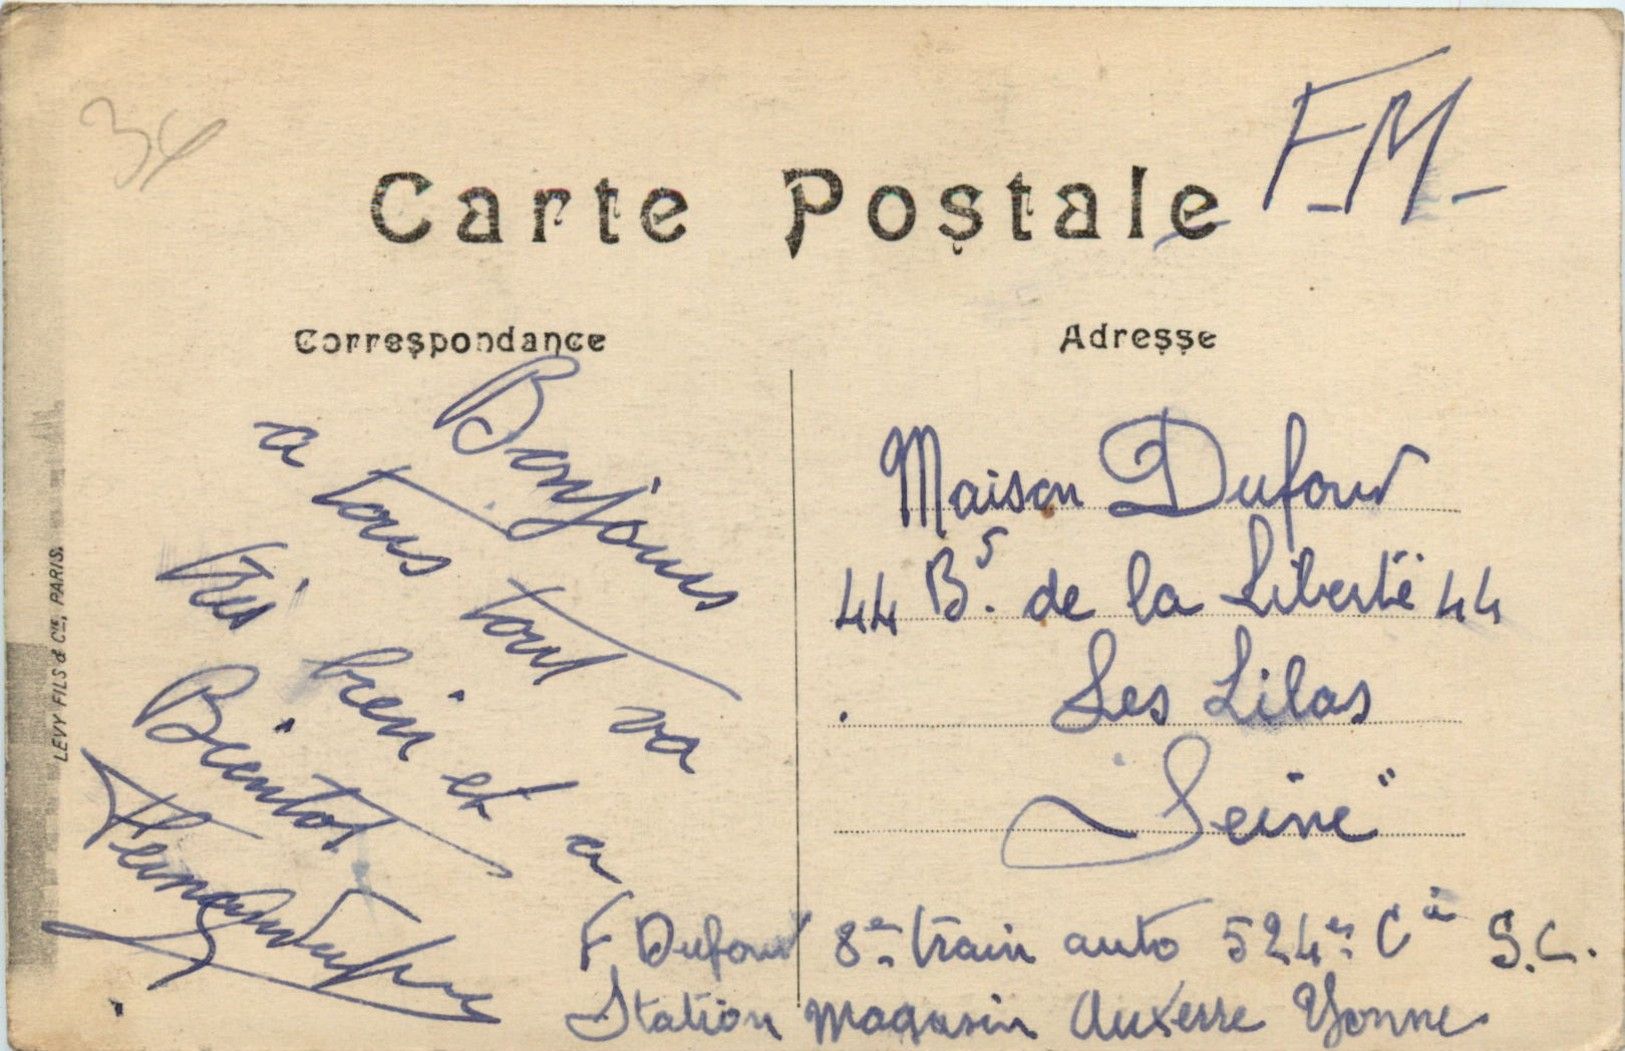 34
Carte Postale
F-M-
Correspondance
Bonjours
a tous tout va
très bien et a
Bientot
LEVY FILS & Cie, PARIS.
Adresse
Maison Dufour
44 Bs. de la Liberté 44
Les Lilas
Seine"
F Dufour 8e train auto 524e Cie S.C.
Station Magasin Auxerre Yonne